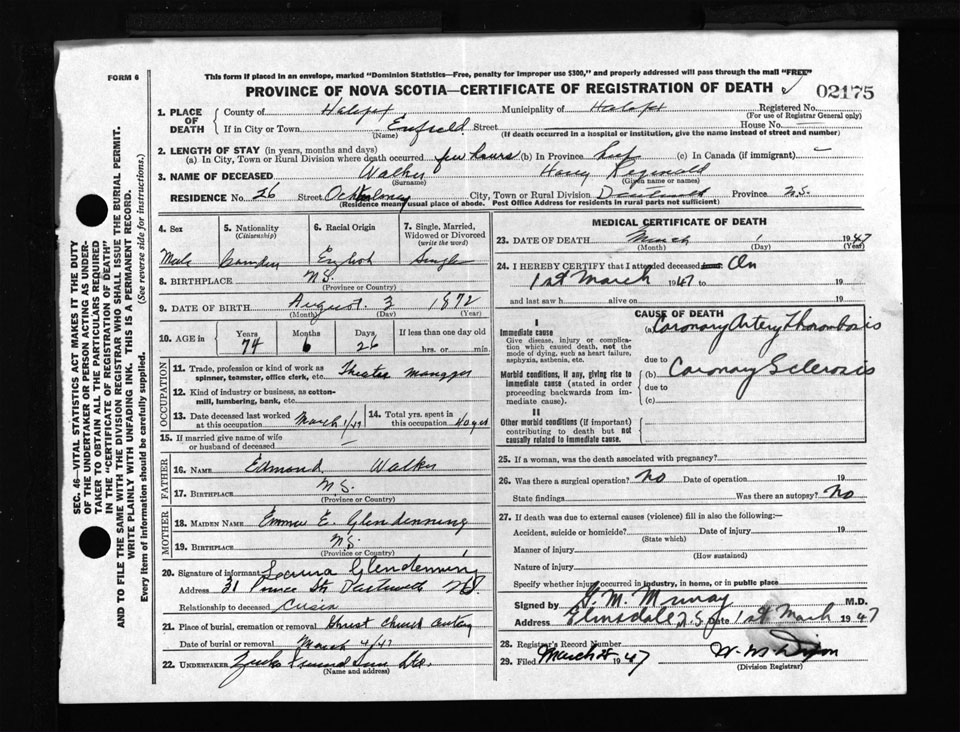 FORM 6
This form if placed in an envelope, marked "Dominion Statistics—Free, penalty for improper use $300," and properly addressed will pass through the mail "FREE"
PROVINCE OF NOVA SCOTIA—CERTIFICATE OF REGISTRATION OF DEATH
02175
1. PLACE OF DEATH
County of Halifax Municipality of Halifax Registered No.
(For use of Registrar General only)
If in City or Town Enfield Street House No.
(Name) (If death occurred in a hospital or institution, give the name instead of street and number)
2. LENGTH OF STAY (in years, months and days)
(a) In City, Town or Rural Division where death occurred few hours (b) In Province (c) In Canada (if immigrant)
3. NAME OF DECEASED Walker Harry Reginald
(Surname) (Given name or names)
RESIDENCE No. 26 Street Ochterloney City, Town or Rural Division Dartmouth Province N.S.
(Residence means usual place of abode. Post Office Address for residents in rural parts not sufficient)
4. Sex
Male
5. Nationality
(Citizenship)
Canadian
6. Racial Origin
English
7. Single, Married, Widowed or Divorced
(write the word)
Single
8. BIRTHPLACE N.S.
(Province or Country)
9. DATE OF BIRTH August 3 1872
(Month) (Day) (Year)
10. AGE in
Years Months Days If less than one day old
74 6 26 hrs. or min.
OCCUPATION
11. Trade, profession or kind of work as spinner, teamster, office clerk, etc. Theater manager
12. Kind of industry or business, as cotton-mill, lumbering, bank, etc.
13. Date deceased last worked at this occupation March 1/47
14. Total yrs. spent in this occupation 40 yrs
15. If married give name of wife or husband of deceased
FATHER
16. NAME Edmond Walker
17. BIRTHPLACE N.S.
(Province or Country)
MOTHER
18. MAIDEN NAME Emma E. Glendenning
19. BIRTHPLACE N.S.
(Province or Country)
20. Signature of informant Glendenning
Address 31 Prince St. Dartmouth N.S.
Relationship to deceased Cusin
21. Place of burial, cremation or removal Christ Church
Date of burial or removal March 4/47
22. UNDERTAKER
(Name and address)
MEDICAL CERTIFICATE OF DEATH
23. DATE OF DEATH March 1 1947
(Month) (Day) (Year)
24. I HEREBY CERTIFY that I attended deceased On
1st March 1947 to 19
and last saw h alive on 19
CAUSE OF DEATH
I
Immediate cause
Give disease, injury or complication which caused death, not the mode of dying, such as heart failure, asphyxia, asthenia, etc.
(a) Coronary Artery Thrombosis
due to
Morbid conditions, if any, giving rise to immediate cause (stated in order proceeding backwards from immediate cause).
(b) Coronary Sclerosis
due to
(c)
II
Other morbid conditions (if important) contributing to death but not causally related to immediate cause.
25. If a woman, was the death associated with pregnancy?
26. Was there a surgical operation? No Date of operation 19
State findings Was there an autopsy? No
27. If death was due to external causes (violence) fill in also the following:—
Accident, suicide or homicide? Date of injury 19
(State which)
Manner of injury
(How sustained)
Nature of injury
Specify whether injury occurred in industry, in home, or in public place
Signed by G. M. Murray M.D.
Address Elmsdale N.S. Date 1st March 1947
28. Registrar's Record Number
29. Filed March 28 1947 W. M. Dixon
(Division Registrar)
SEC. 46—VITAL STATISTICS ACT MAKES IT THE DUTY
OF THE UNDERTAKER OR PERSON ACTING AS UNDER-
TAKER TO OBTAIN ALL THE PARTICULARS REQUIRED
IN THE "CERTIFICATE OF REGISTRATION OF DEATH"
AND TO FILE THE SAME WITH THE DIVISION REGISTRAR WHO SHALL ISSUE THE BURIAL PERMIT.
WRITE PLAINLY WITH UNFADING INK. THIS IS A PERMANENT RECORD.
Every item of information should be carefully supplied. (See reverse side for instructions.)